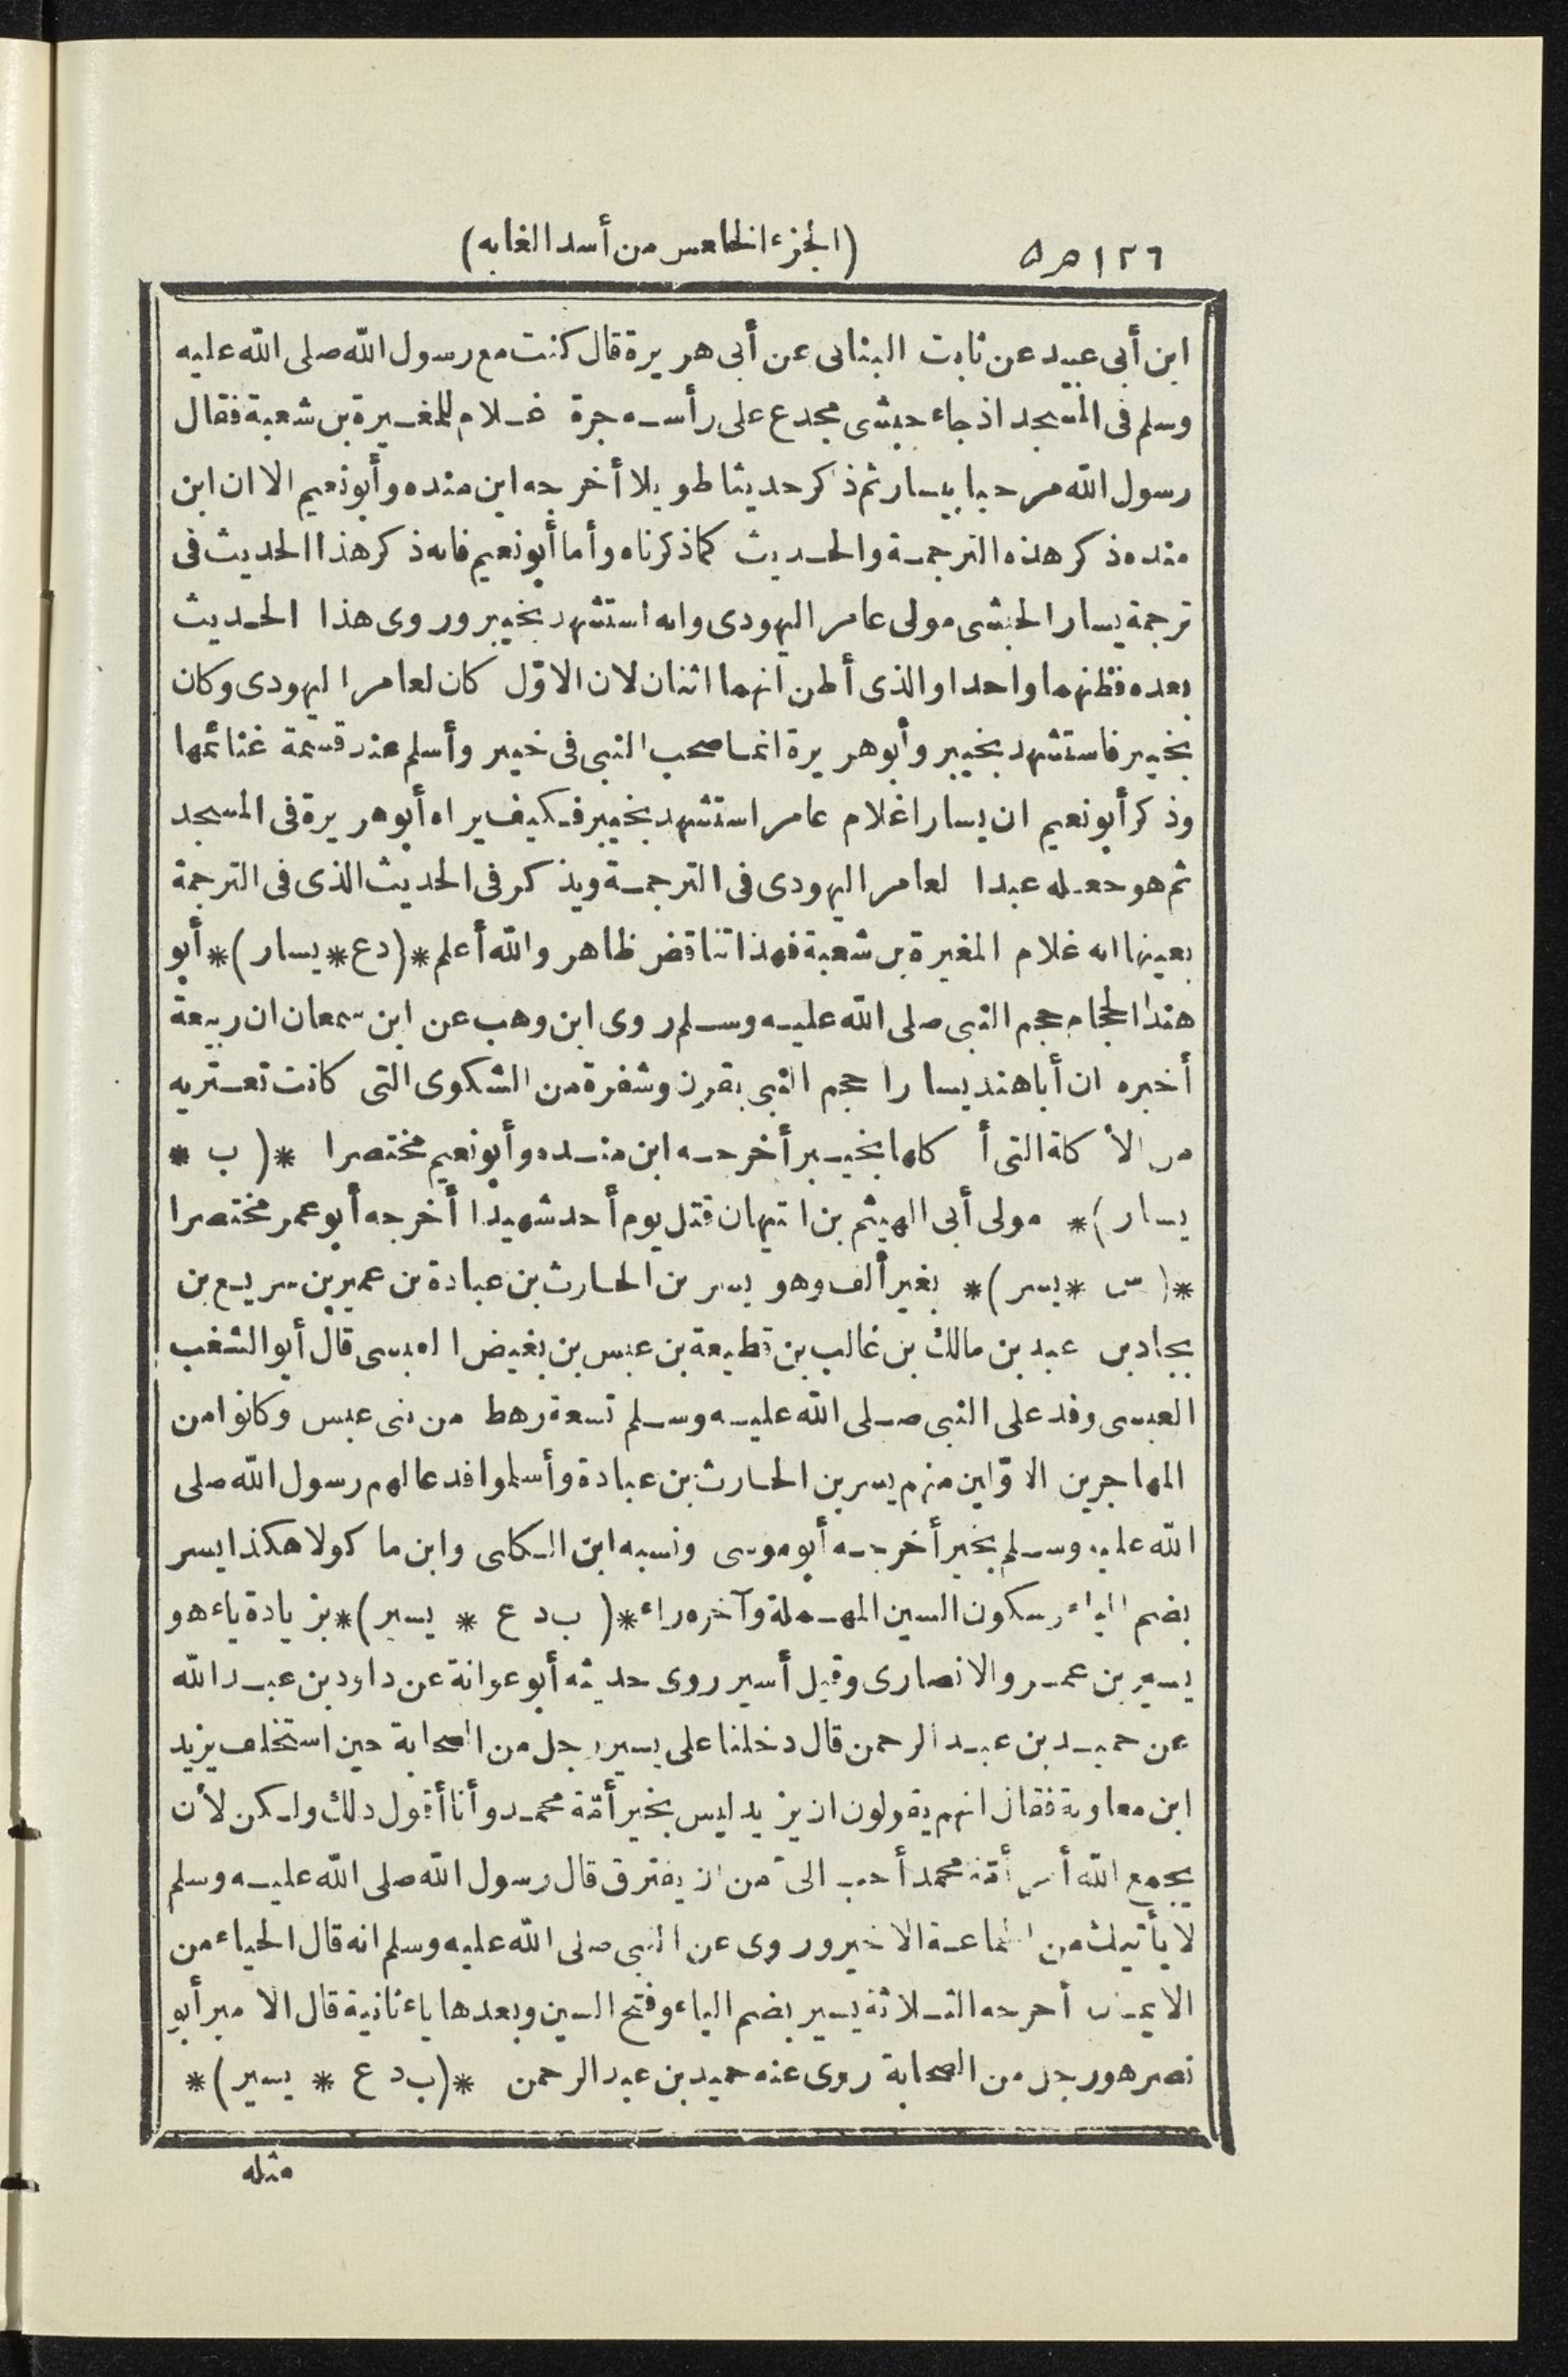 ١٢٦ (الجزء الخامس من أسد الغابه)
ابن أبى عبيد عن ثابت البنانى عن أبى هريرة قال كنت مع رسول الله صلى الله عليه
وسلم فى المسجد اذ جاء حبشى مجدع على رأسه جرة غلام للمغيرة بن شعبة فقال
رسول الله مرحبا بيسار ثم ذكر حديثا طويلا أخرجه ابن منده وأبو نعيم الا ان ابن
منده ذكر هذه الترجمة والحديث كما ذكرناه وأما أبو نعيم فانه ذكر هذا الحديث فى
ترجمة يسار الحبشى مولى عامر اليهودى وانه استشهد بخيبر وروى هذا الحديث
بعده فظنهما واحدا والذى أظن انهما اثنان لان الاوّل كان لعامر اليهودى وكان
بخيبر فاستشهد بخيبر وأبو هريرة انما صحب النبى فى خيبر وأسلم عند قسمة غنائمها
وذكر أبو نعيم ان يسارا غلام عامر استشهد بخيبر فكيف يراه أبو هريرة فى المسجد
ثم هو جعله عبدا لعامر اليهودى فى الترجمة ويذكر فى الحديث الذى فى الترجمة
بعينها انه غلام المغيرة بن شعبة فهذا تناقض ظاهر والله أعلم *(دع * يسار)* أبو
هند الحجام حجم النبى صلى الله عليه وسلم روى ابن وهب عن ابن سمعان ان ربيعة
أخبره ان أبا هند يسارا حجم النبى بقرن وشفرة من الشكوى التى كانت تعتريه
من الأكلة التى أكلها بخيبر أخرجه ابن منده وأبو نعيم مختصرا *(ب *
يسار)* مولى أبى الهيثم بن التيهان قتل يوم أحد شهيدا أخرجه أبو عمر مختصرا
*(س * يسر)* بغير ألف وهو يسر بن الحارث بن عبادة بن عمير بن سريع بن
بجاد بن عبد بن مالك بن غالب بن قطيعة بن عبس بن بغيض العبسى قال أبو الشغب
العبسى وفد على النبى صلى الله عليه وسلم تسعة رهط من بنى عبس وكانوا من
المهاجرين الاوّلين منهم يسر بن الحارث بن عبادة وأسلموا فدعا لهم رسول الله صلى
الله عليه وسلم بخير أخرجه أبو موسى ونسبه ابن الكلبى وابن ماكولا هكذا يسر
بضم الياء وسكون السين المهملة وآخره راء *(ب د ع * يسير)* بزيادة ياء هو
يسير بن عمرو الانصارى وقيل أسير روى حديثه أبو عوانة عن داود بن عبد الله
عن حميد بن عبد الرحمن قال دخلنا على يسير رجل من الصحابة حين استخلف يزيد
ابن معاوية فقال انهم يقولون ان يزيد ليس بخير أمّة محمد وأنا أقول ذلك ولكن لأن
يجمع الله أمر أمّة محمد أحب الىّ من ان يفترق قال رسول الله صلى الله عليه وسلم
لا يأتيك من الجماعة الا خير وروى عن النبى صلى الله عليه وسلم انه قال الحياء من
الايمان أخرجه الثلاثة يسير بضم الياء وفتح السين وبعدها ياء ثانية قال الامير أبو
نصر هو رجل من الصحابة روى عنه حميد بن عبد الرحمن *(ب د ع * يسير)*
مثله